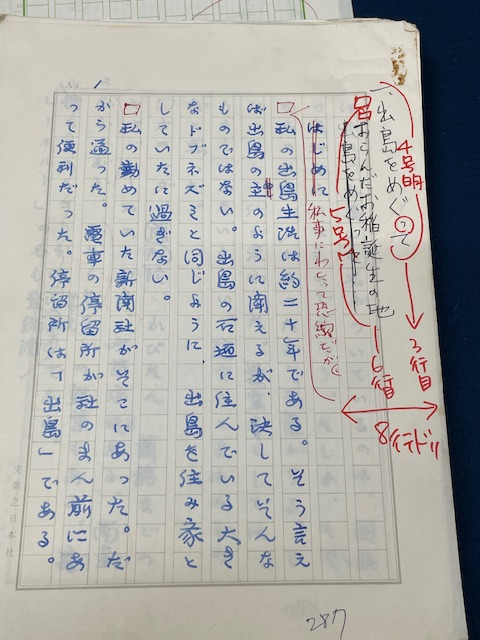 No. 1
一、出島をめぐって
4号明
3行目
おらんだお稲誕生の地
出島をめぐって
5号
6行目
8行ドリ
はじめに
私事にわたって恐縮だが、
私の出島生活は約二十年である。そう言え
ば出島の主のように聞えるが、決してそんな
ものではない。出島の石垣に住んでいる大き
なドブネズミと同じように、出島を住み家と
していたに過ぎない。
私の勤めていた新聞社がそこにあった。だ
から通った。電車の停留所が社のまん前にあ
って便利だった。停留所は「出島」である。
実業之日本社
287